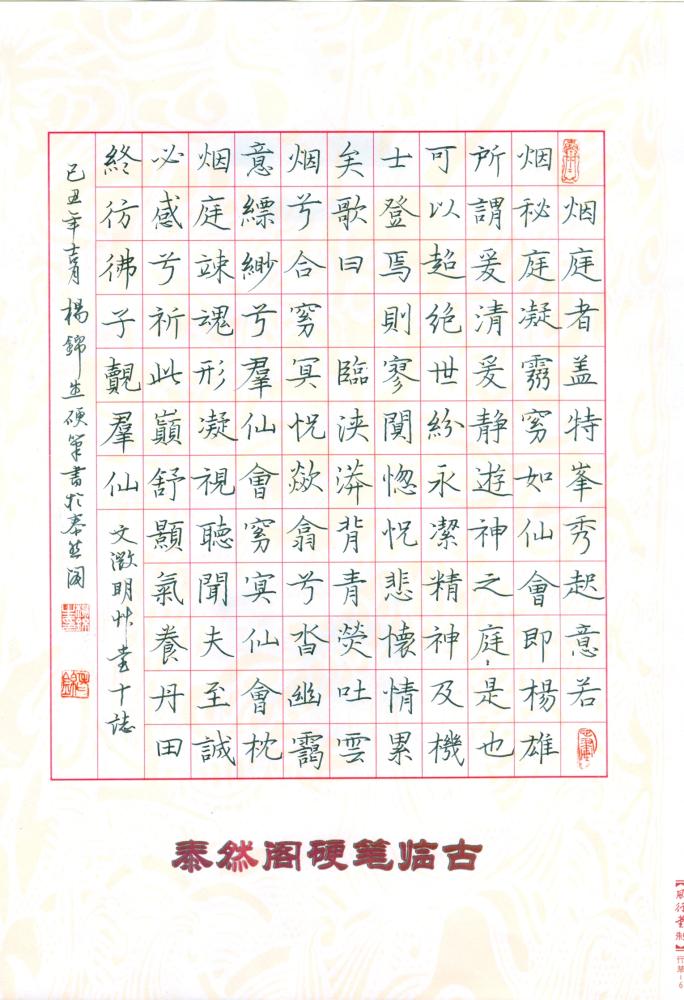 烟庭者盖特峯秀起意若
烟秘庭凝窅如仙會即楊雄
所謂爰清爰静遊神之庭是也
可以超绝世紛永潔精神及機
士登焉則寥闃惚怳悲懷情累
矣歌曰 臨泱漭背青熒吐雲
烟兮合窅冥怳欻翕兮沓幽靄
意縹緲兮羣仙會窅冥仙會枕
烟庭竦魂形凝視聽聞夫至誠
必感兮祈此巔舒顥氣養丹田
終彷彿子覿羣仙 文徵明艸堂十誌
己丑年 楊錦生硬筆書於泰然阁
泰然阁硬笔临古